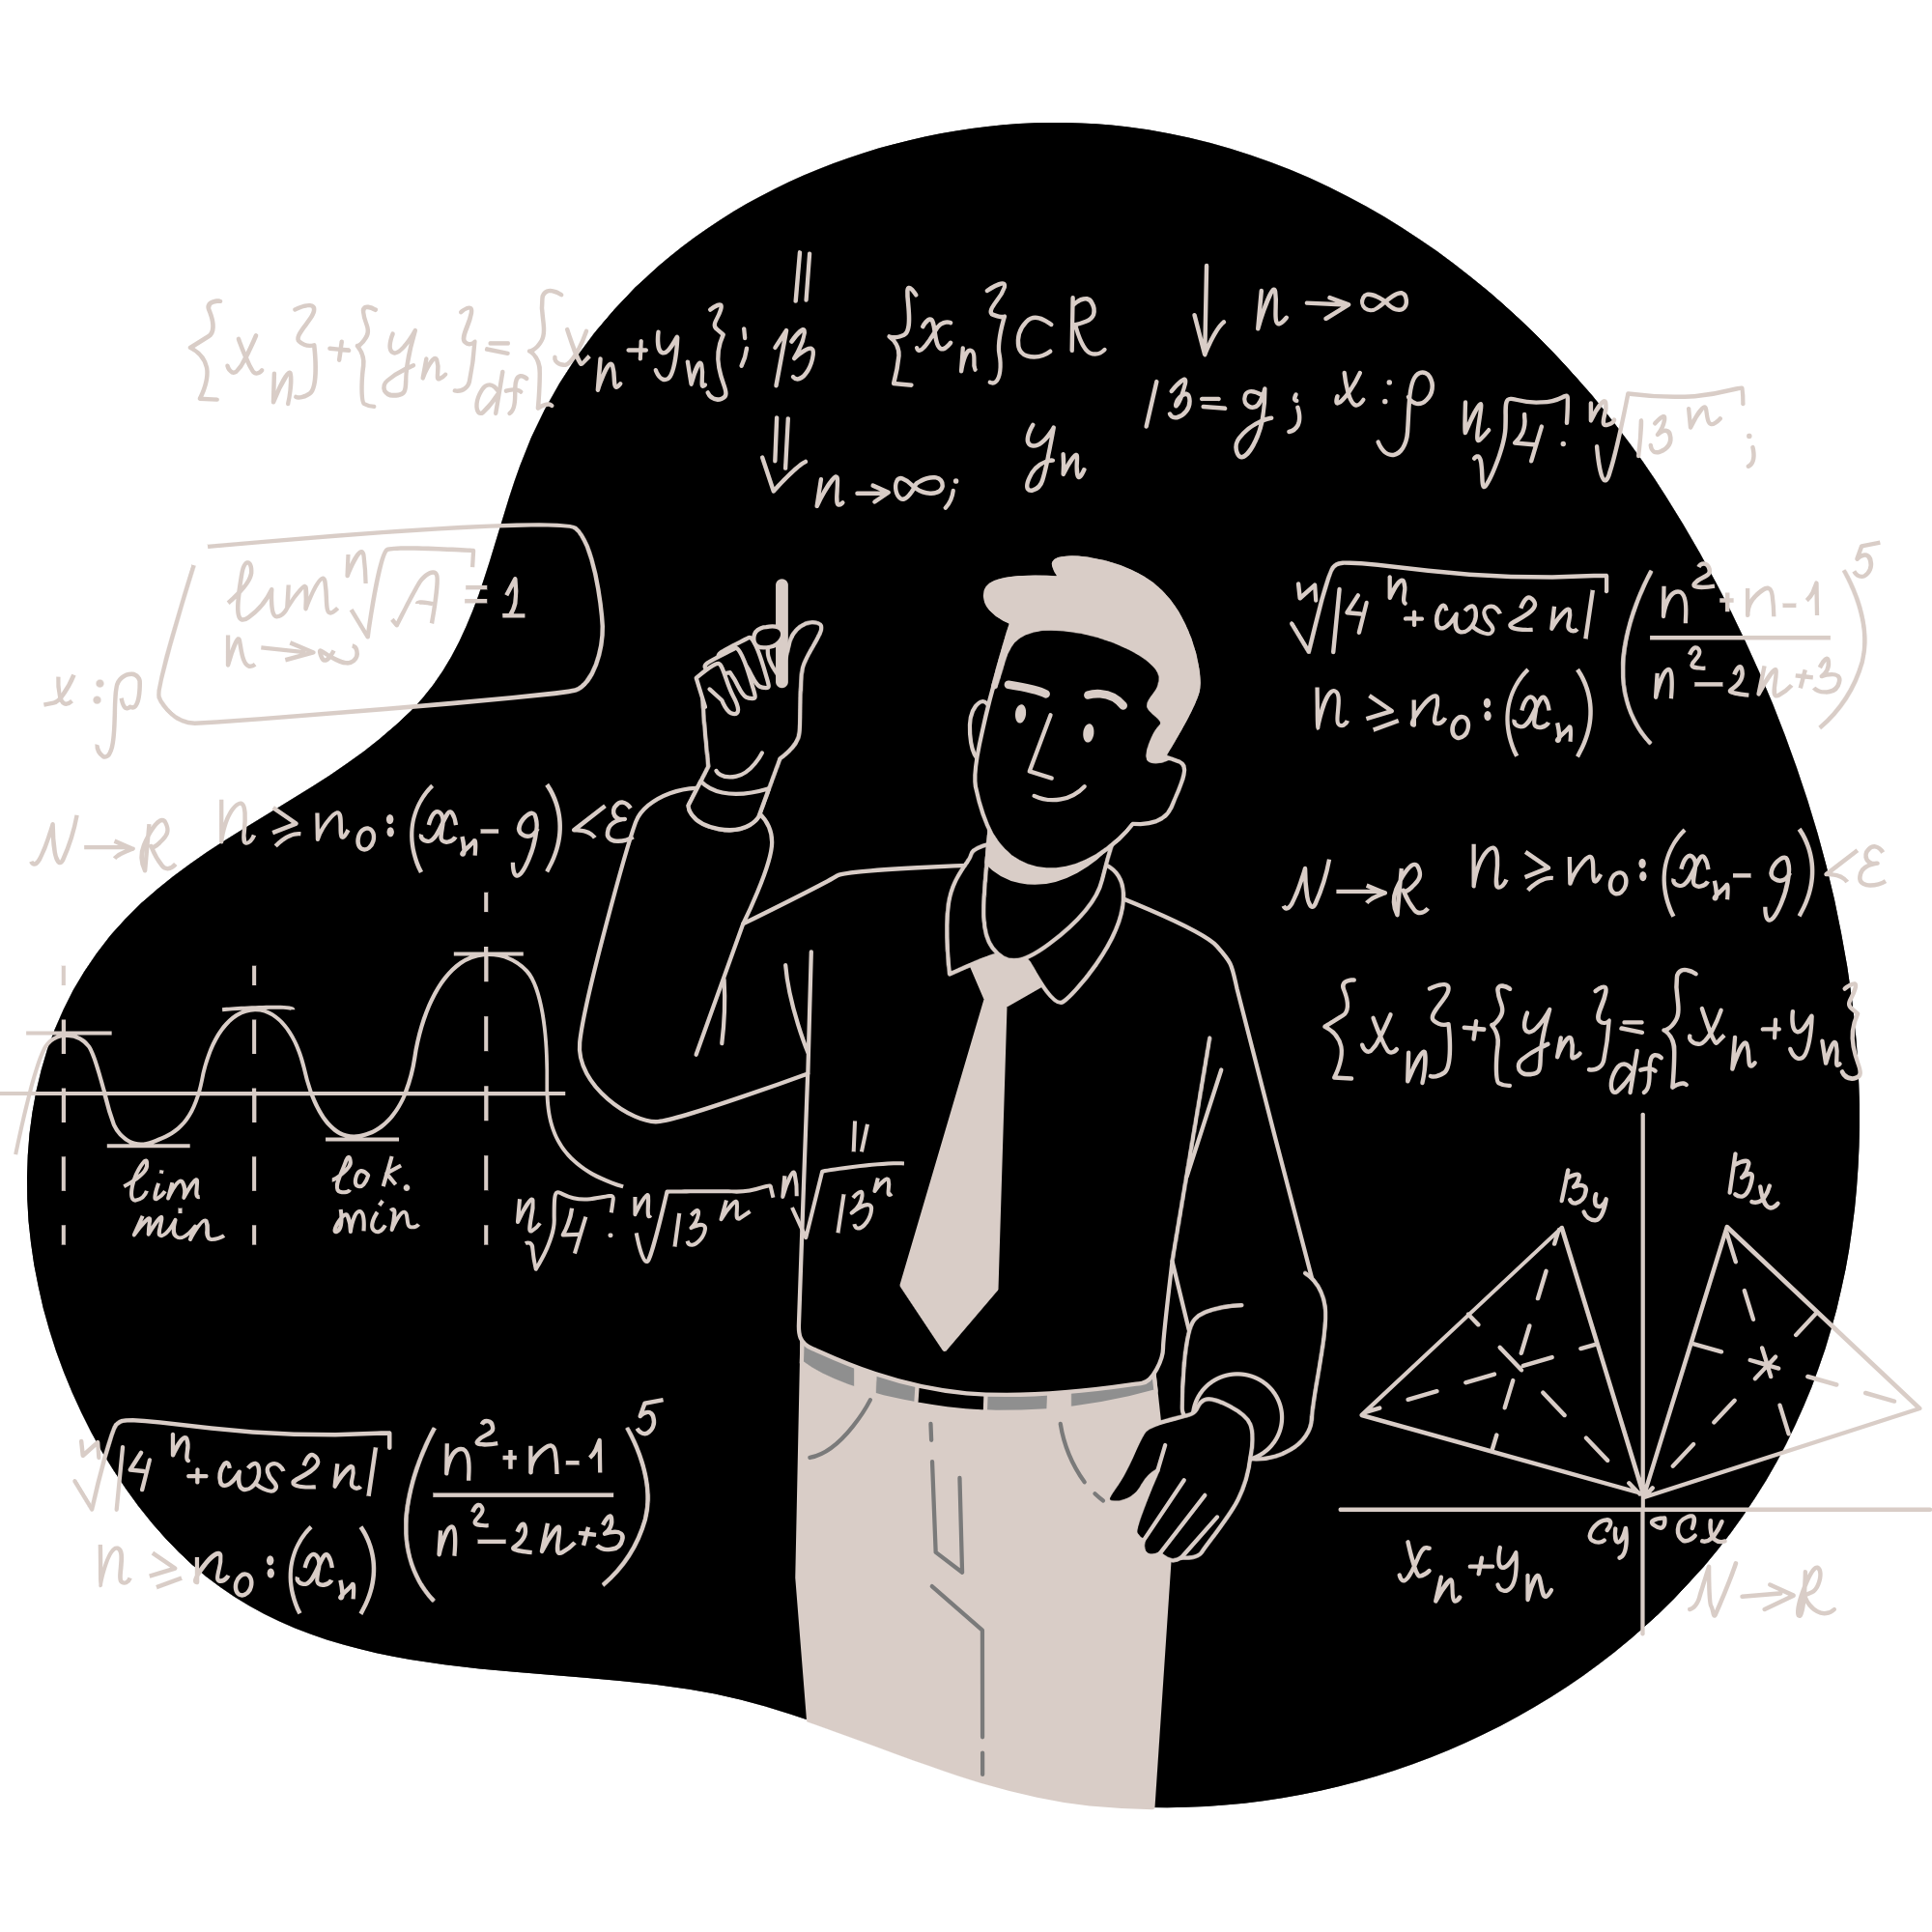 {x_n}+{y_n}=df{x_n+y_n};
‖
13
n→∞;
{x_n}CR
y_n
↓ n→∞
13=g; x:p ⁿ√4: ⁿ√13ⁿ;
x:p (lim n→∞ ⁿ√A = 1
ⁿ√|4ⁿ+cos2n| (n²+n-1 / n²-2n+3)⁵
n⩾n₀:(x_n)
N→R n⩾n₀:(x_n-g)<ε
N→R n⩾n₀:(x_n-g)<ε
{x_n}+{y_n}=df{x_n+y_n}
lim
min
lok.
min
ⁿ√4: ⁿ√13ⁿ ⁿ√13ⁿ
By Bx
ⁿ√|4ⁿ+cos2n| (n²+n-1 / n²-2n+3)⁵
n⩾n₀:(x_n)
Cy Cx
x_n+y_n
N→R